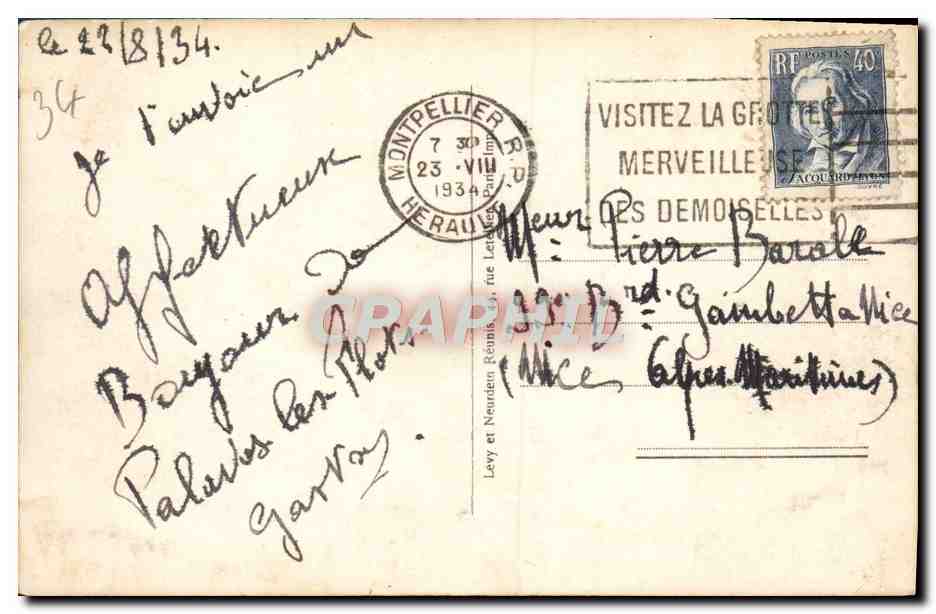 le 22/8/34.
34
je t'envoie un
Affectueux
Bonjour de
Palavas les Flots
MONTPELLIER R.P.
7 30
23 VIII
1934
HERAULT
VISITEZ LA GROTTE
MERVEILLEUSE
DES DEMOISELLES
RF POSTES 40c
JACQUARD LYON
Levy et Neurdein Réunis, 44, rue Letellier, Paris Imp.
CRAPHIL
Mr. Pierre
Bd. Gambetta Nice
(Nice Alpes Maritimes)